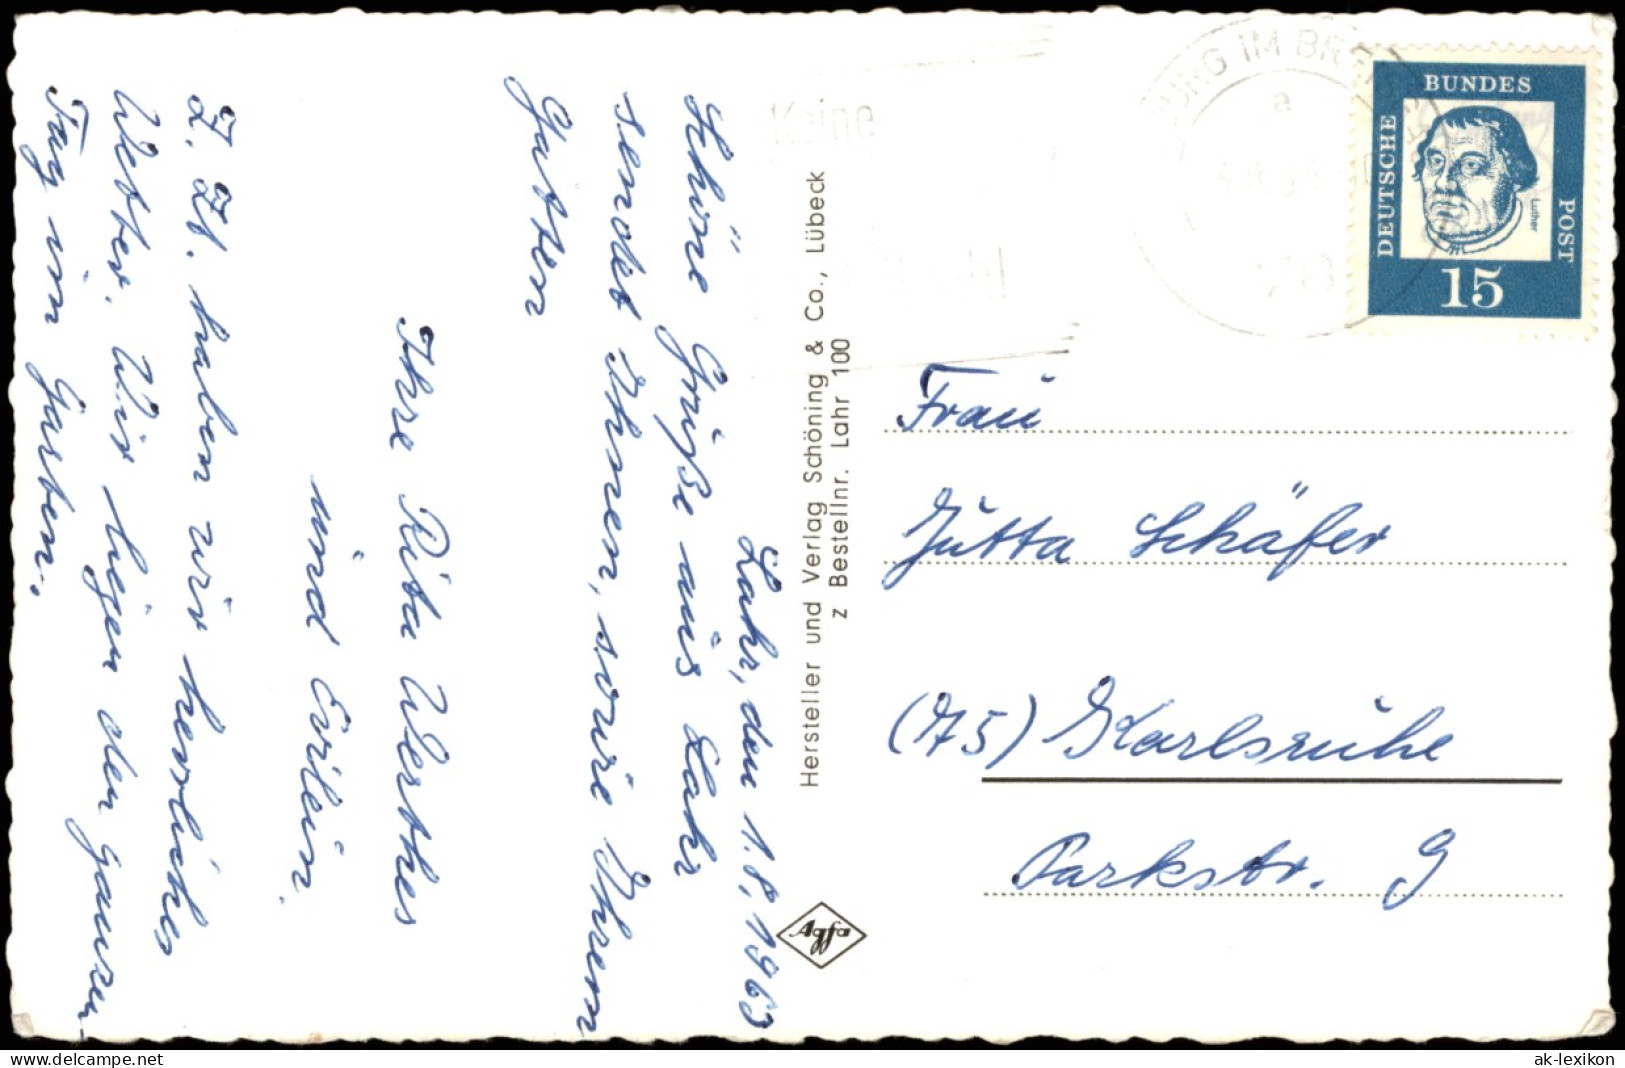 Lahr, den 1.8.1963
Schöne Grüße aus Lahr
sendet Ihnen, sowie Ihrem
Gatten
Ihre Rita Werthes
und Evilein.
Z. Zt. haben wir herrliches
Wetter. Wir liegen den ganzen
Tag im Garten.
Hersteller und Verlag Schöning & Co., Lübeck
z Bestellnr. Lahr 100
agfa
Keine
BURG IM BR
a
DEUTSCHE
BUNDES
POST
Luther
15
Frau
Jutta Schäfer
(75) Karlsruhe
Parkstr. 9
www.akpool.de
ak-lexikon